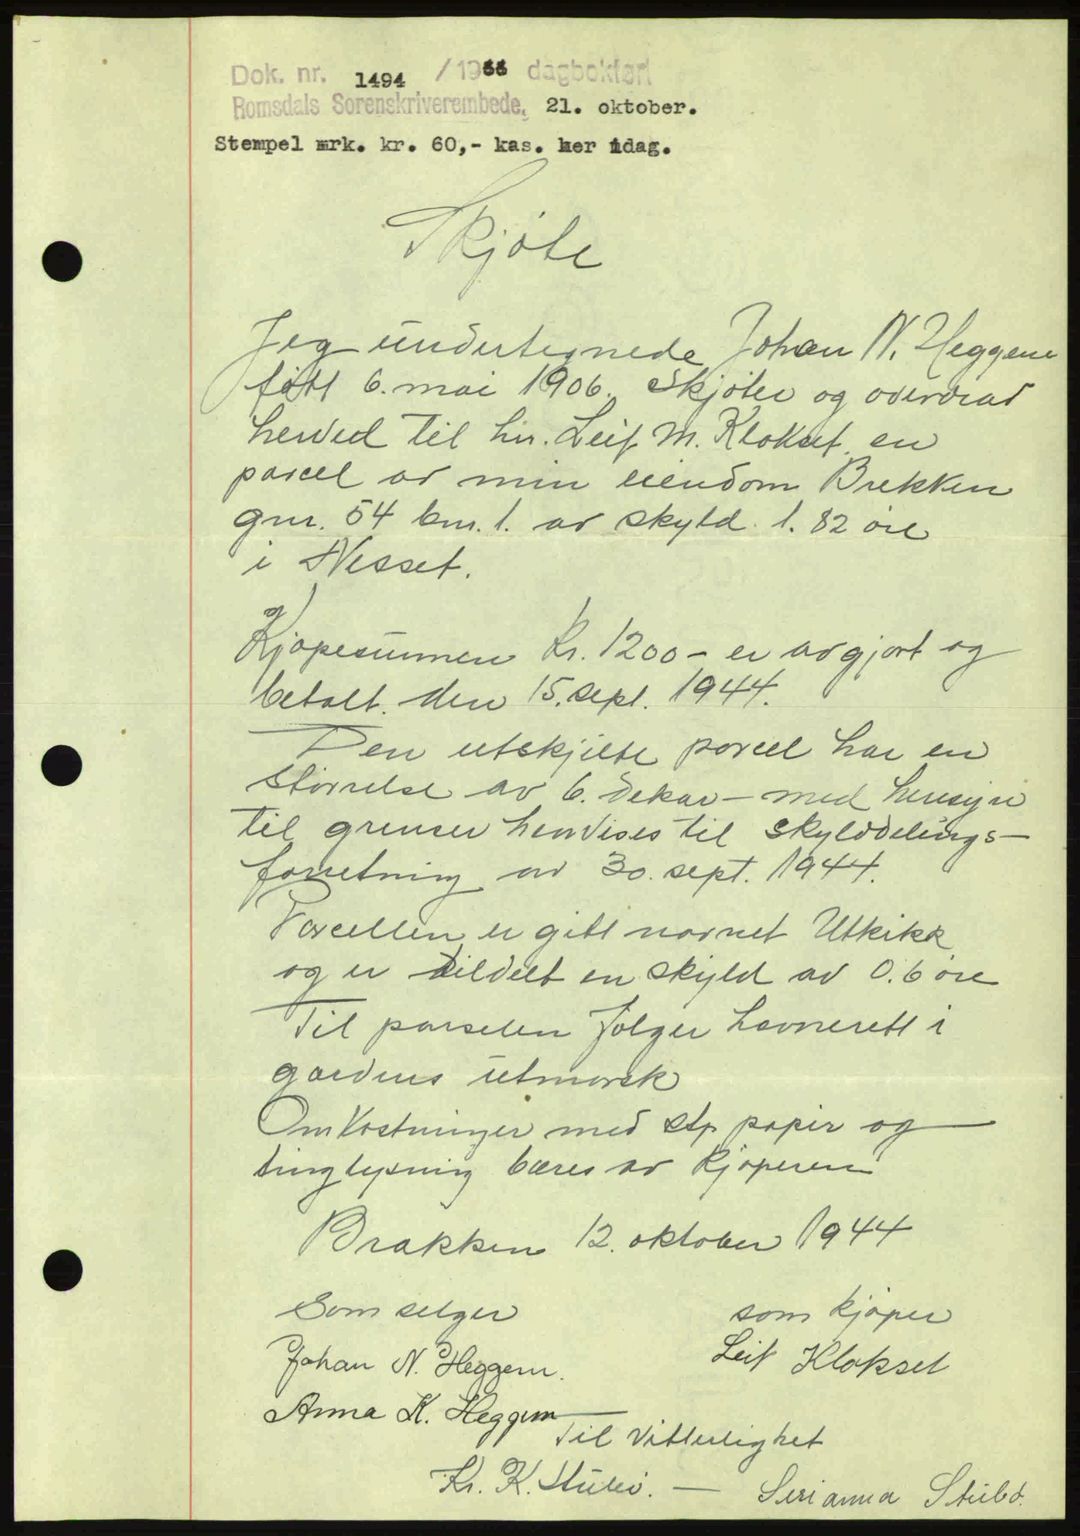 Dok. nr. 1494 /1944 dagbokført
Romsdals Sorenskriverembede, 21. oktober.
Stempel mrk. kr. 60,- kas. her idag.
Skjøte
Jeg undertegnede Johan N. Heggem
født 6. mai 1906. Skjøter og overdrar
herved til hr. Leif M. Klokset en
parcel av min eiendom Brekken
gnr. 54 bnr. 1. av skyld 1.82 øre
i Nesset.
Kjøpesummen kr. 1200- er avgjort og
betalt. den 15. sept. 1944.
Den utskjilte parcel har en
størrelse av 6. dekar - med hensyn
til grenser henvises til skylddelings-
forretning av 30. sept. 1944.
Parcellen er gitt navnet Utkikk
og er tildelt en skyld av 0.6 øre
Til parselen følger havnerett i
gardens utmark
Omkostninger med stp papir og
tinglysning bæres av kjøperen
Brakken 12. oktober 1944
Som selger som kjøper
Johan N. Heggem. Leif Klokset
Anna K. Heggem
Til vitterlighet
Kr. K. - Serianna